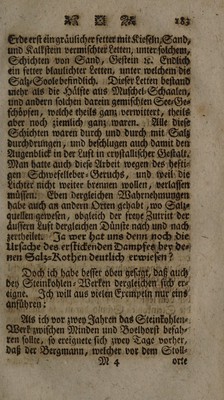 183
Erde erst ein gräulicher fetter mit Kieseln, Sand,
und Kalkstein vermischter Letten, unter solchem,
Schichten von Sand, Gestein ꝛc. Endlich
ein fetter blaulichter Letten, unter welchem die
Salz-Soole befindlich. Dieser Letten bestand
mehr als die Hälfte aus Muschel-Schaalen,
und andern solchen darein gemischten See-Ge-
schöpfen, welche theils ganz verwittert, theils
aber noch ziemlich ganz waren. Alle diese
Schichten waren durch und durch mit Salz
durchdrungen, und beschlugen auch damit den
Augenblick in der Luft in crystallischer Gestalt.
Man hatte auch diese Arbeit wegen des hefti-
gen Schwefelleber-Geruchs, und weil die
Lichter nicht weiter brennen wollen, verlassen
müssen. Eben dergleichen Wahrnehmungen
habe auch an andern Orten gehabt, wo Salz-
quellen gewesen, obgleich der freye Zutrit der
äussern Luft dergleichen Dünste nach und nach
zertheilet. Ja wer hat uns denn noch die
Ursache des erstickenden Dampfes bey de-
nen Salz-Kothen deutlich erwiesen?
Doch ich habe besser oben gesagt, daß auch
bey Steinkohlen-Werken dergleichen sich er-
eigne. Ich will aus vielen Exempeln nur eins
anführen:
Als ich vor zwey Jahren das Steinkohlen-
Werk zwischen Minden und Boelhorst befah-
ren sollte, so ereignete sich zwey Tage vorher,
daß der Bergmann, welcher vor dem Stoll-
M 4 orte